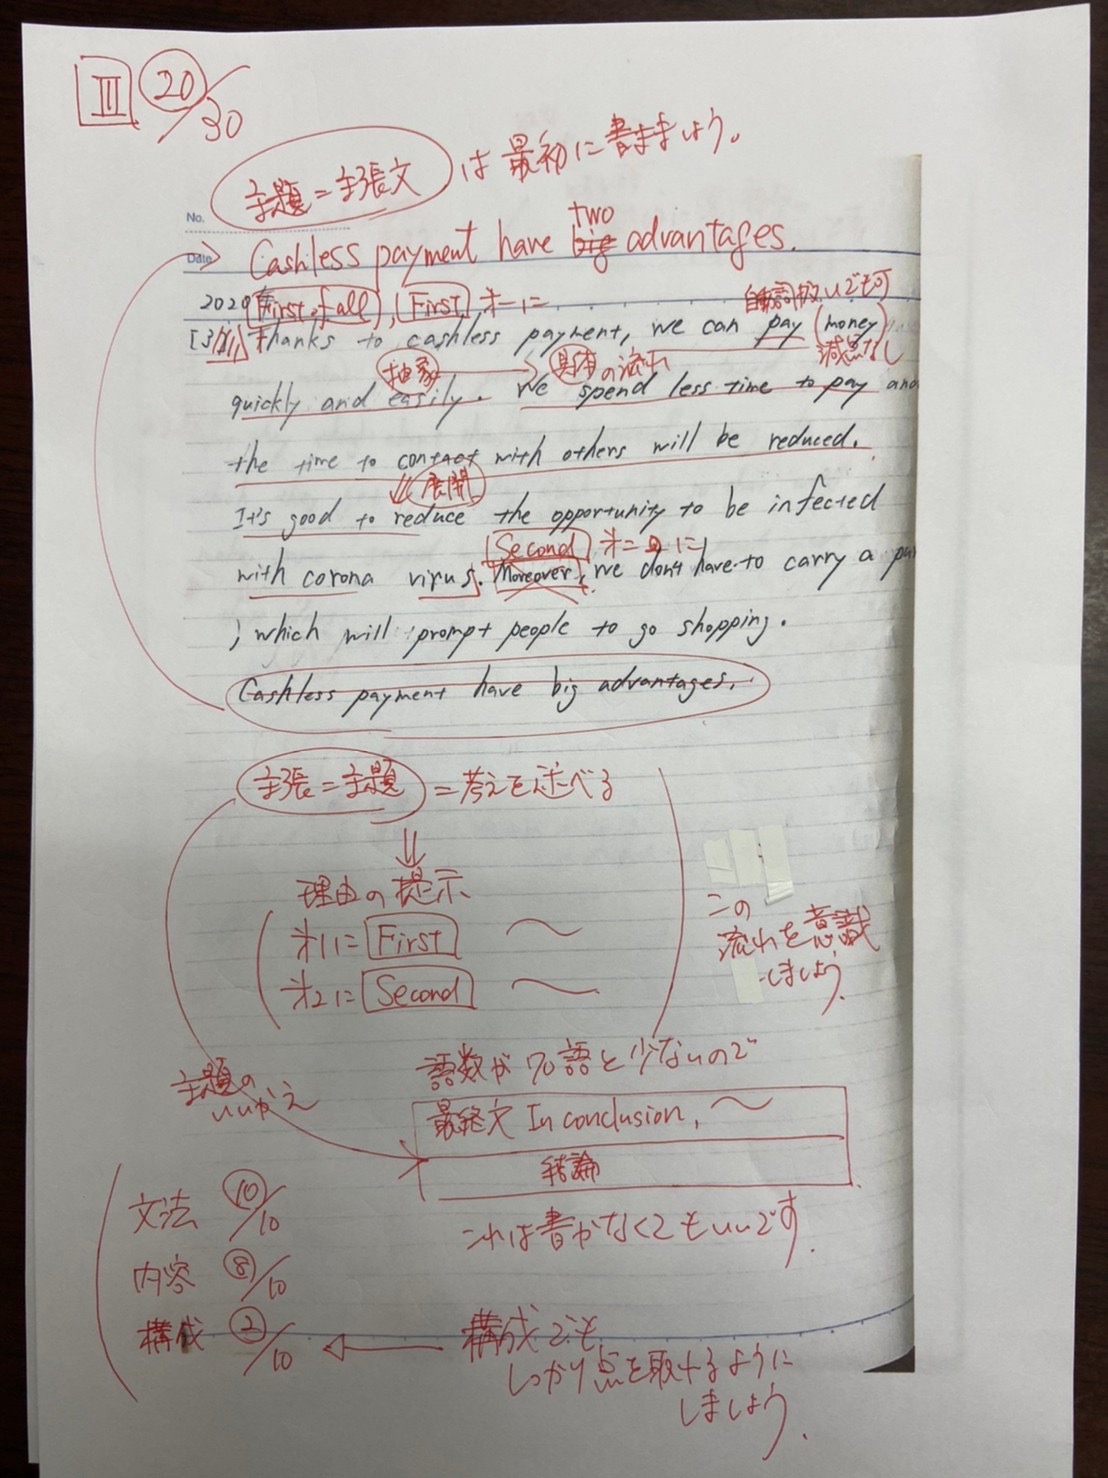 III 20/30
主題=主張文 は最初に書きましょう。
No.
two
Date Cashless payment have big advantages.
2020年 First of all, First, 第一に 自動詞扱いでも可
[3/11] Thanks to cashless payment, we can pay (money)
抽象 → 具体の流れ 減点なし
quickly and easily. We spend less time to pay and
the time to contact with others will be reduced.
展開
It's good to reduce the opportunity to be infected
Second 第二に
with corona virus. Moreover, we don't have to carry a
, which will prompt people to go shopping.
Cashless payment have big advantages.
主張=主題 =考えを述べる
理由の提示
第1に First 〜
第2に Second 〜
この
流れを意識
しましょう
語数が70語と少ないので
主題の
いいかえ
最終文 In conclusion, 〜
結論
これは書かなくてもいいです.
文法 10/10
内容 8/10
構成 2/10 ← 構成でも
しっかり点を取れるように
しましょう.